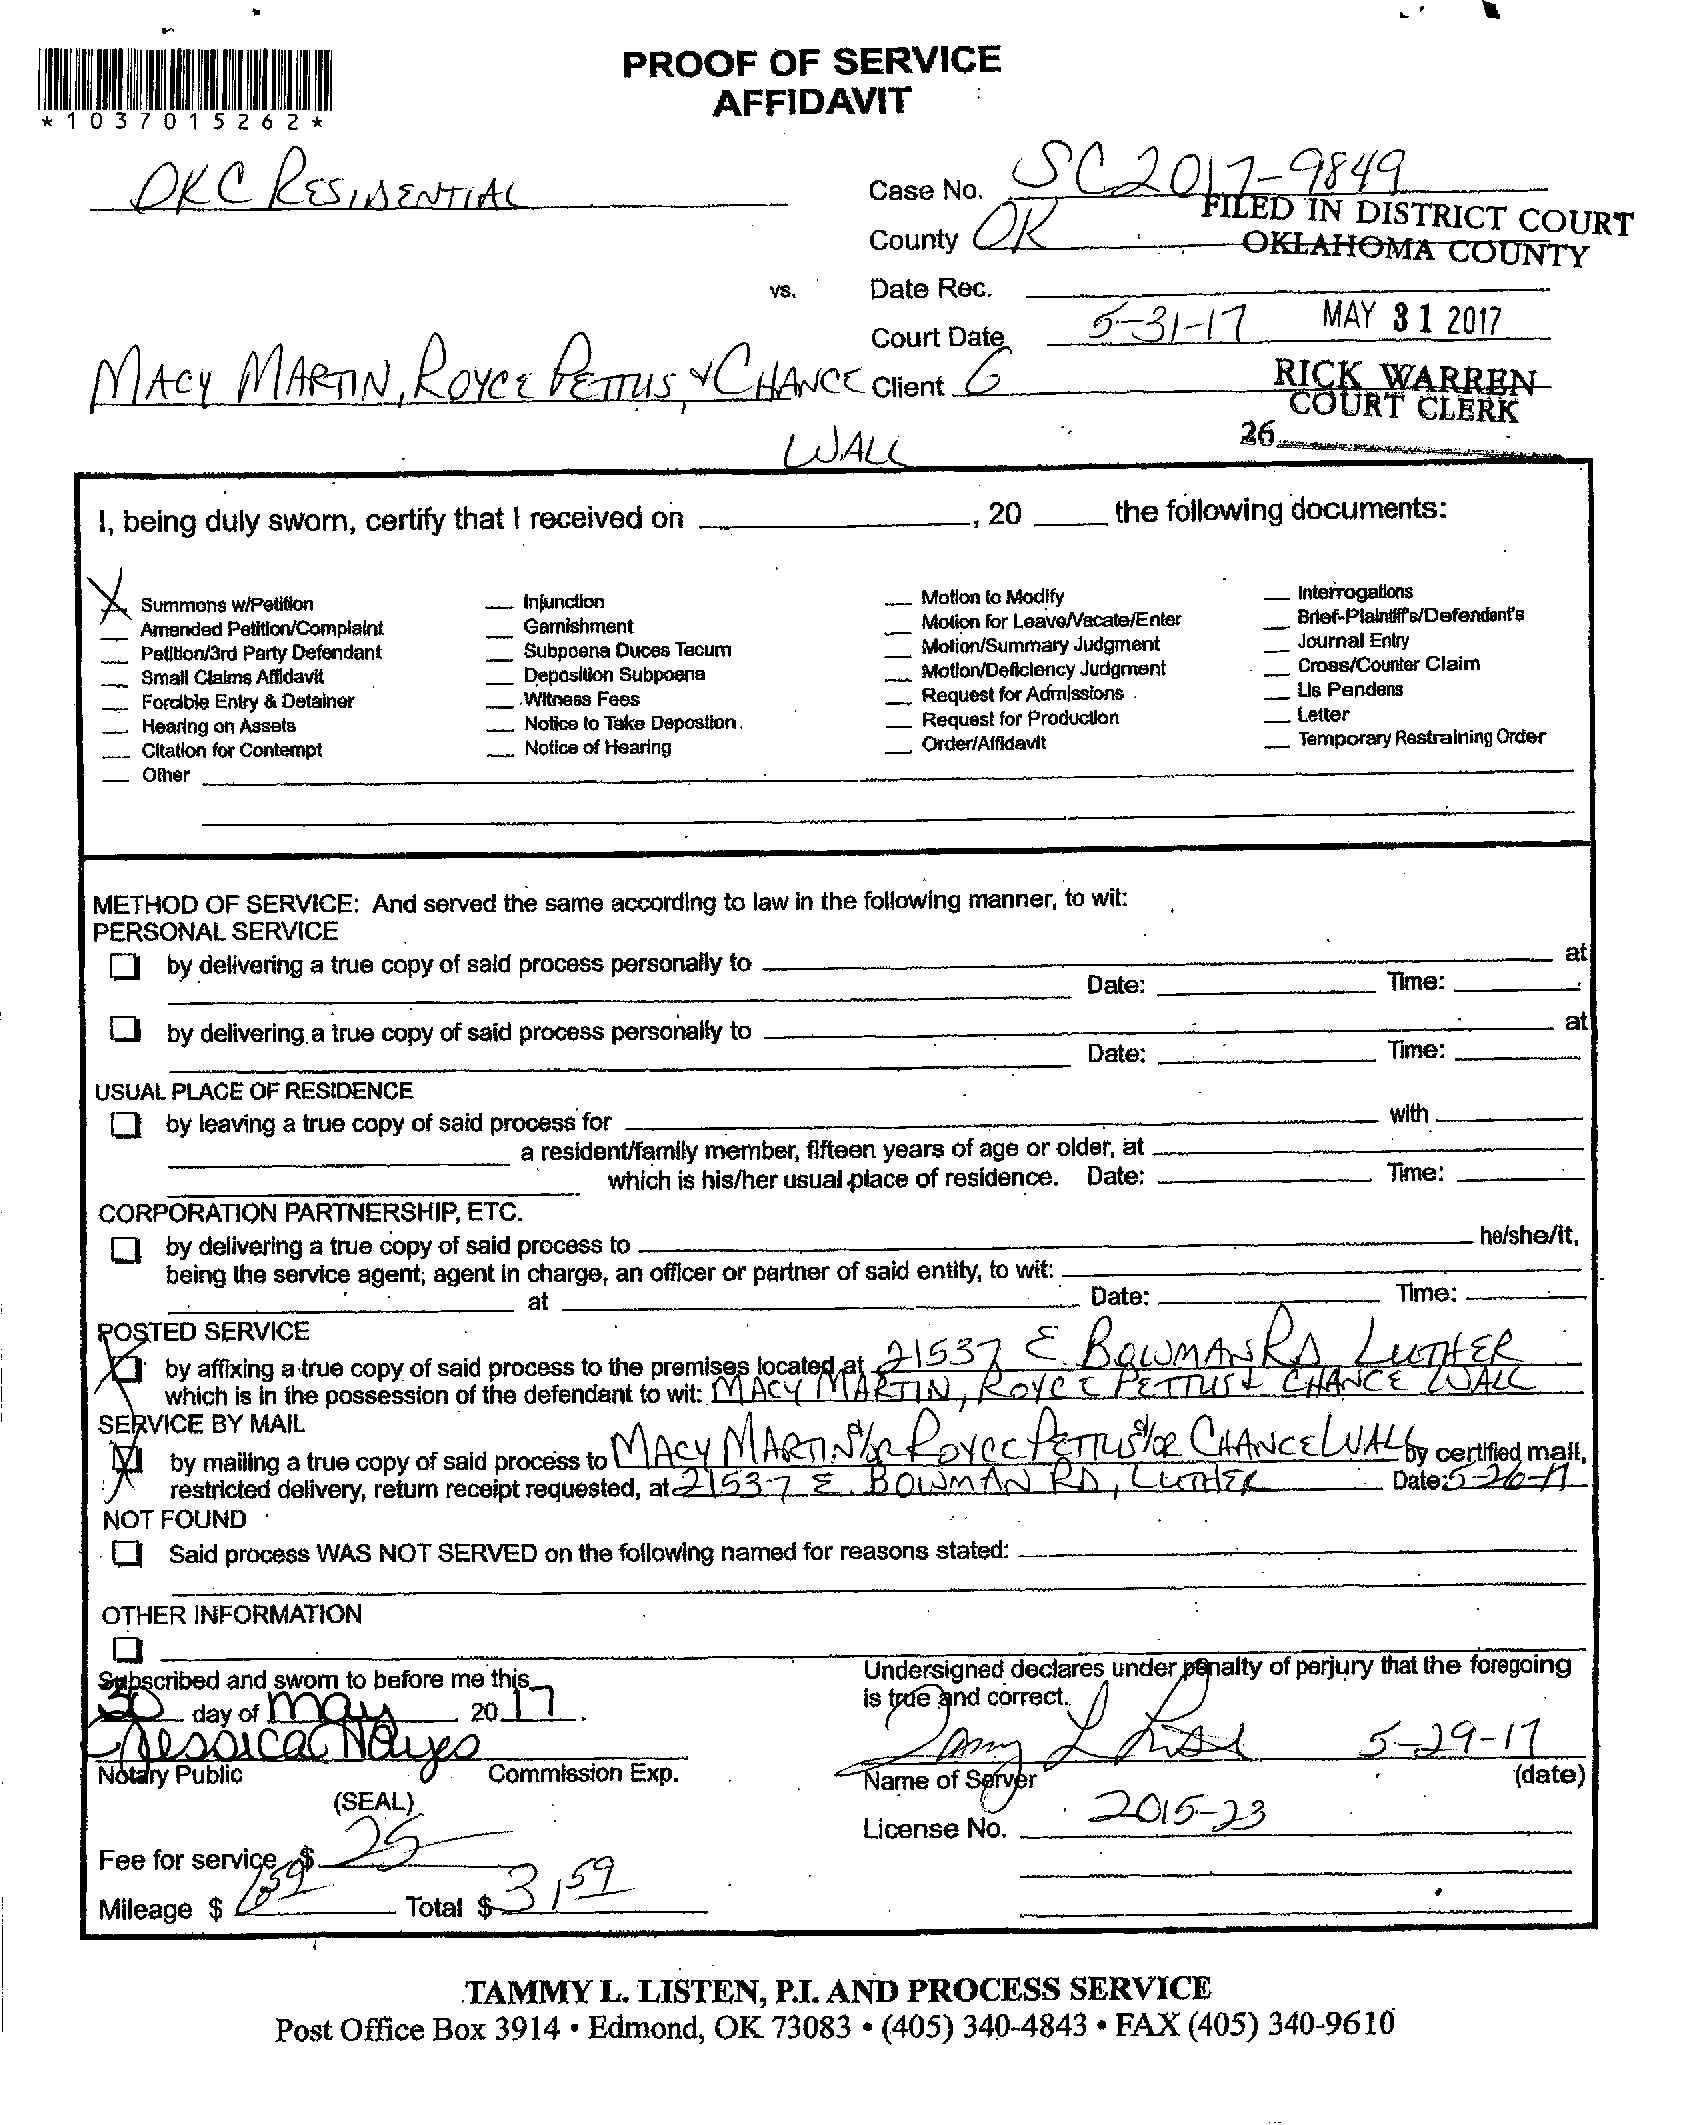 PROOF OF SERVICE
AFFIDAVIT
*1037015262*
OKC RESIDENTIAL
Case No. SC2017-9849
FILED IN DISTRICT COURT
County OK
OKLAHOMA COUNTY
vs.
Date Rec.
Court Date 5-31-17
MAY 31 2017
MACY MARTIN, ROYCE PETTUS, & CHANCE
WALL
Client G
RICK WARREN
COURT CLERK
26
I, being duly sworn, certify that I received on ____, 20 ____ the following documents:
X Summons w/Petition
Amended Petition/Complaint
Petition/3rd Party Defendant
Small Claims Affidavit
Forcible Entry & Detainer
Hearing on Assets
Citation for Contempt
Other
Injunction
Garnishment
Subpoena Duces Tacum
Deposition Subpoena
Witness Fees
Notice to Take Depostion.
Notice of Hearing
Motion to Modify
Motion for Leave/Vacate/Enter
Motion/Summary Judgment
Motion/Deficiency Judgment
Request for Admissions
Request for Production
Order/Affidavit
Interrogations
Brief-Plaintiff's/Defendant's
Journal Entry
Cross/Counter Claim
Lis Pendens
Letter
Temporary Restraining Order
METHOD OF SERVICE: And served the same according to law in the following manner, to wit:
PERSONAL SERVICE
by delivering a true copy of said process personally to ____ at
Date: ____ Time: ____
by delivering a true copy of said process personally to ____ at
Date: ____ Time: ____
USUAL PLACE OF RESIDENCE
by leaving a true copy of said process for ____ with ____
a resident/family member, fifteen years of age or older, at ____
which is his/her usual place of residence. Date: ____ Time: ____
CORPORATION PARTNERSHIP, ETC.
by delivering a true copy of said process to ____ he/she/it,
being the service agent, agent in charge, an officer or partner of said entity, to wit: ____
____ at ____ Date: ____ Time: ____
POSTED SERVICE
X by affixing a true copy of said process to the premises located at 21537 E. BOWMAN RD, LUTHER
which is in the possession of the defendant to wit: MACY MARTIN, ROYCE PETTUS & CHANCE WALL
SERVICE BY MAIL
X by mailing a true copy of said process to MACY MARTIN &/or ROYCE PETTUS &/or CHANCE WALL by certified mail,
restricted delivery, return receipt requested, at 21537 E. BOWMAN RD, LUTHER Date: 5-26-17
NOT FOUND
Said process WAS NOT SERVED on the following named for reasons stated: ____
OTHER INFORMATION
Subscribed and sworn to before me this
30 day of May 2017.
Jessica Hayes
Notary Public Commission Exp.
(SEAL)
Fee for service $ 25
Mileage $ 6.59 Total $ 31.59
Undersigned declares under penalty of perjury that the foregoing
is true and correct.
Tammy L Listen 5-29-17
Name of Server (date)
License No. 2015-23
TAMMY L. LISTEN, P.I. AND PROCESS SERVICE
Post Office Box 3914 • Edmond, OK 73083 • (405) 340-4843 • FAX (405) 340-9610